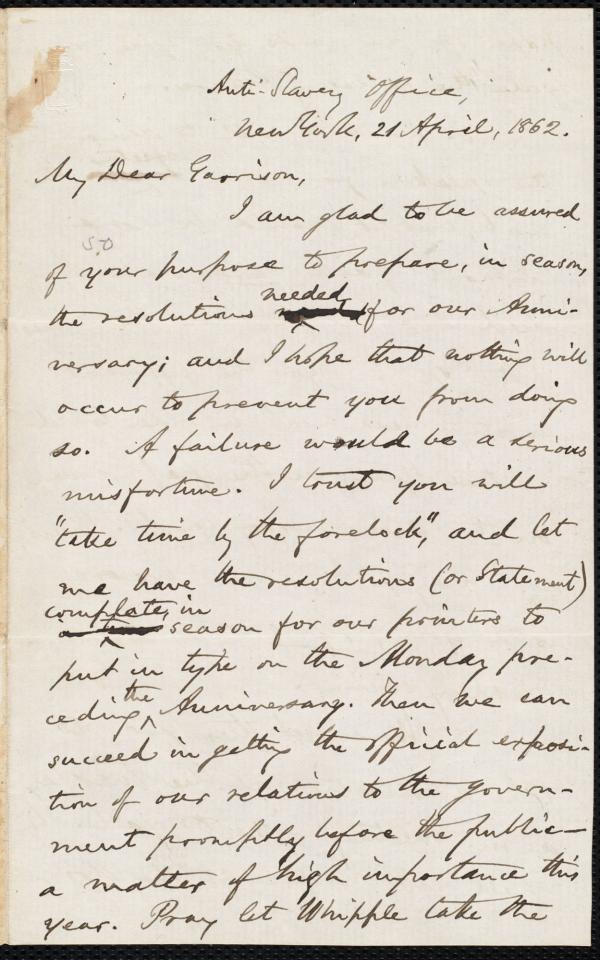 Anti-Slavery Office,
New York, 21 April, 1862.
My Dear Garrison,
I am glad to be assured
50
of your purpose to prepare, in season,
the resolutions needed for our Anni-
versary; and I hope that nothing will
occur to prevent you from doing
so. A failure would be a serious
misfortune. I trust you will
"take time by the forelock," and let
me have the resolutions (or Statement)
complete, in
season for our printers to
put in type on the Monday pre-
ceding the Anniversary. Then we can
succeed in getting the official exposi-
tion of our relations to the Govern-
ment promptly before the public—
a matter of high importance this
year. Pray let Whipple take the